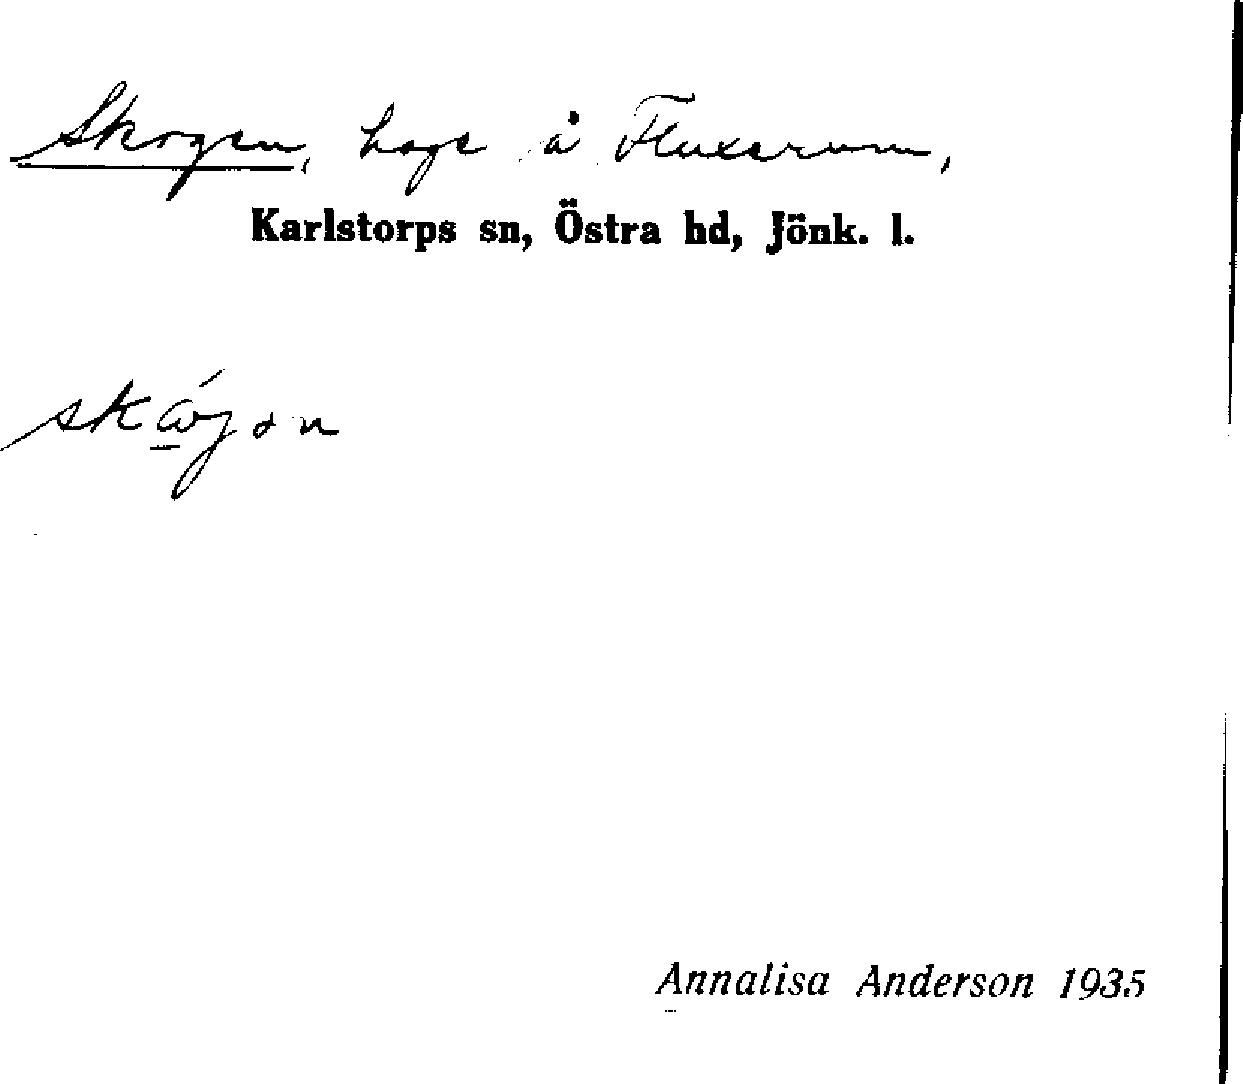 Skogen, hage å Fluxerum,
Karlstorps sn, Östra hd, Jönk. l.
Annalisa Anderson 1935